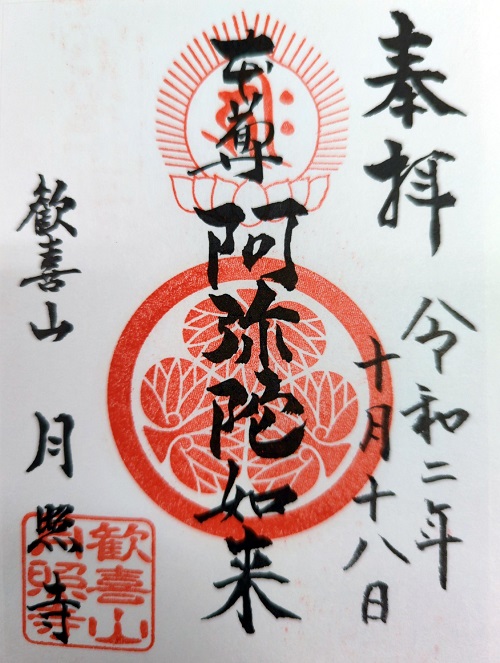 奉拝
令和二年
十月十八日
本尊
阿弥陀如来
歓喜山 月照寺
歓喜山
月照寺